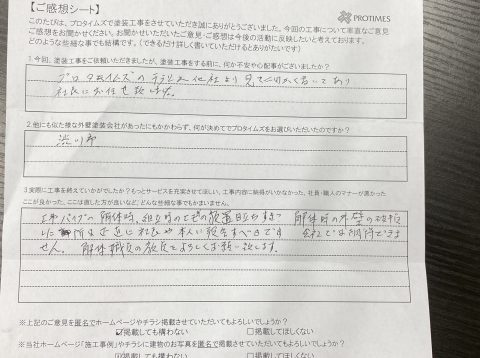 【ご感想シート】
PROTIMES
このたびは、プロタイムズで塗装工事をさせていただき誠にありがとうございました。今回の工事について率直なご意見
ご感想をお聞かせください。お聞かせいただいたご意見・ご感想は今後の活動に反映したいと考えております。
どのような些細な事でも結構です。(できるだけ詳しく書いていただけるとありがたいです)
1.今回、塗装工事をご依頼いただきましたが、塗装工事をする前に、何か不安や心配事がございましたか?
プロタイムズのチラシが他社より
社長にお任せ致しました。
2.他にも似た様な外壁塗装会社があったにもかかわらず、何が決めてでプロタイムズをお選びいただいたのですか?
渋川市
3.実際に工事を終えていかがでしたか?もっとサービスを充実させてほしい、工事内容に納得がいかなかった、社員・職人のマナーが悪かった
ここが良かった、ここは直した方が良いなど、どんな些細な事でもかまいません。
解体時、組立時 解体時の外壁の破損
に 本人に報告すべきです 会社では納得できま
せん。解体職員の教育をよろしくお願い致します。
※上記のご意見を匿名でホームページやチラシ掲載させていただいてもよろしいでしょうか?
☑掲載しても構わない □掲載してほしくない
※当社ホームページ「施工事例」やチラシにお建物のお写真を匿名で掲載させていただいてもよろしいでしょうか?
☑掲載しても構わない □掲載してほしくない